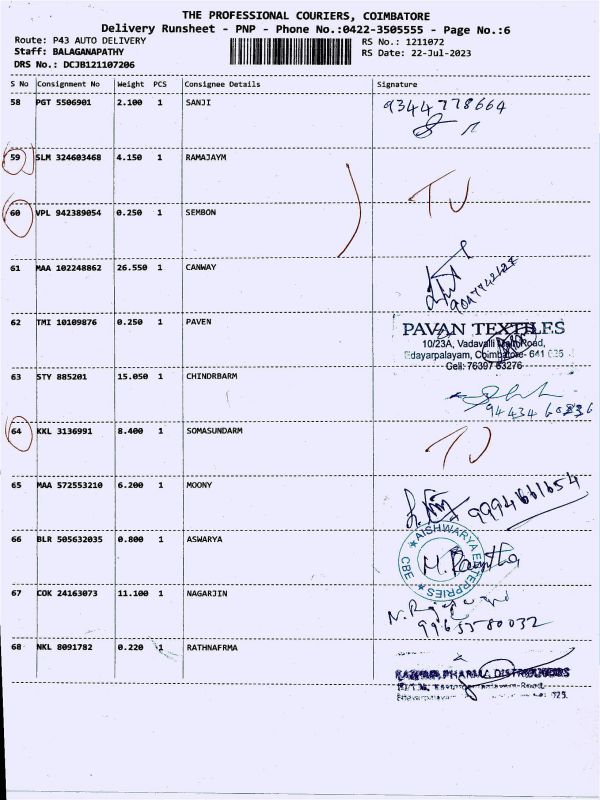 THE PROFESSIONAL COURIERS, COIMBATORE
Delivery Runsheet - PNP - Phone No.:0422-3505555 - Page No.:6
Route: P43 AUTO DELIVERY
RS No.: 1211072
Staff: BALAGANAPATHY
RS Date: 22-Jul-2023
DRS No.: DCJB121107206
S No Consignment No Weight PCS Consignee Details Signature
58 PGT 5506901 2.100 1 SANJI 9344778664
59 SLM 324603468 4.150 1 RAMAJAYM TU
60 VPL 942389054 0.250 1 SEMBON
61 MAA 102248862 26.550 1 CANWAY
62 TMI 10109876 0.250 1 PAVEN
PAVAN TEXTILES
10/23A, Vadavalli Main Road,
Edayarpalayam, Coimbatore- 641 025
Cell: 76397 63276
63 STY 885201 15.050 1 CHINDRBARM
94434 60836
64 KKL 3136991 8.400 1 SOMASUNDARM TU
65 MAA 572553210 6.200 1 MOONY 9994661654
66 BLR 505632035 0.800 1 ASWARYA
AISHWARYA ENTERPRIES
CBE
67 COK 24163073 11.100 1 NAGARJIN
9965580032
68 NKL 8091782 0.220 1 RATHNAFRMA
PHARMA DISTRIBUTORS